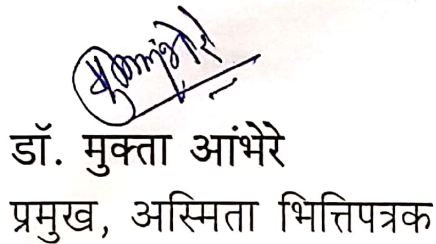 डॉ. मुक्ता आंभेरे
प्रमुख, अस्मिता भित्तिपत्रक